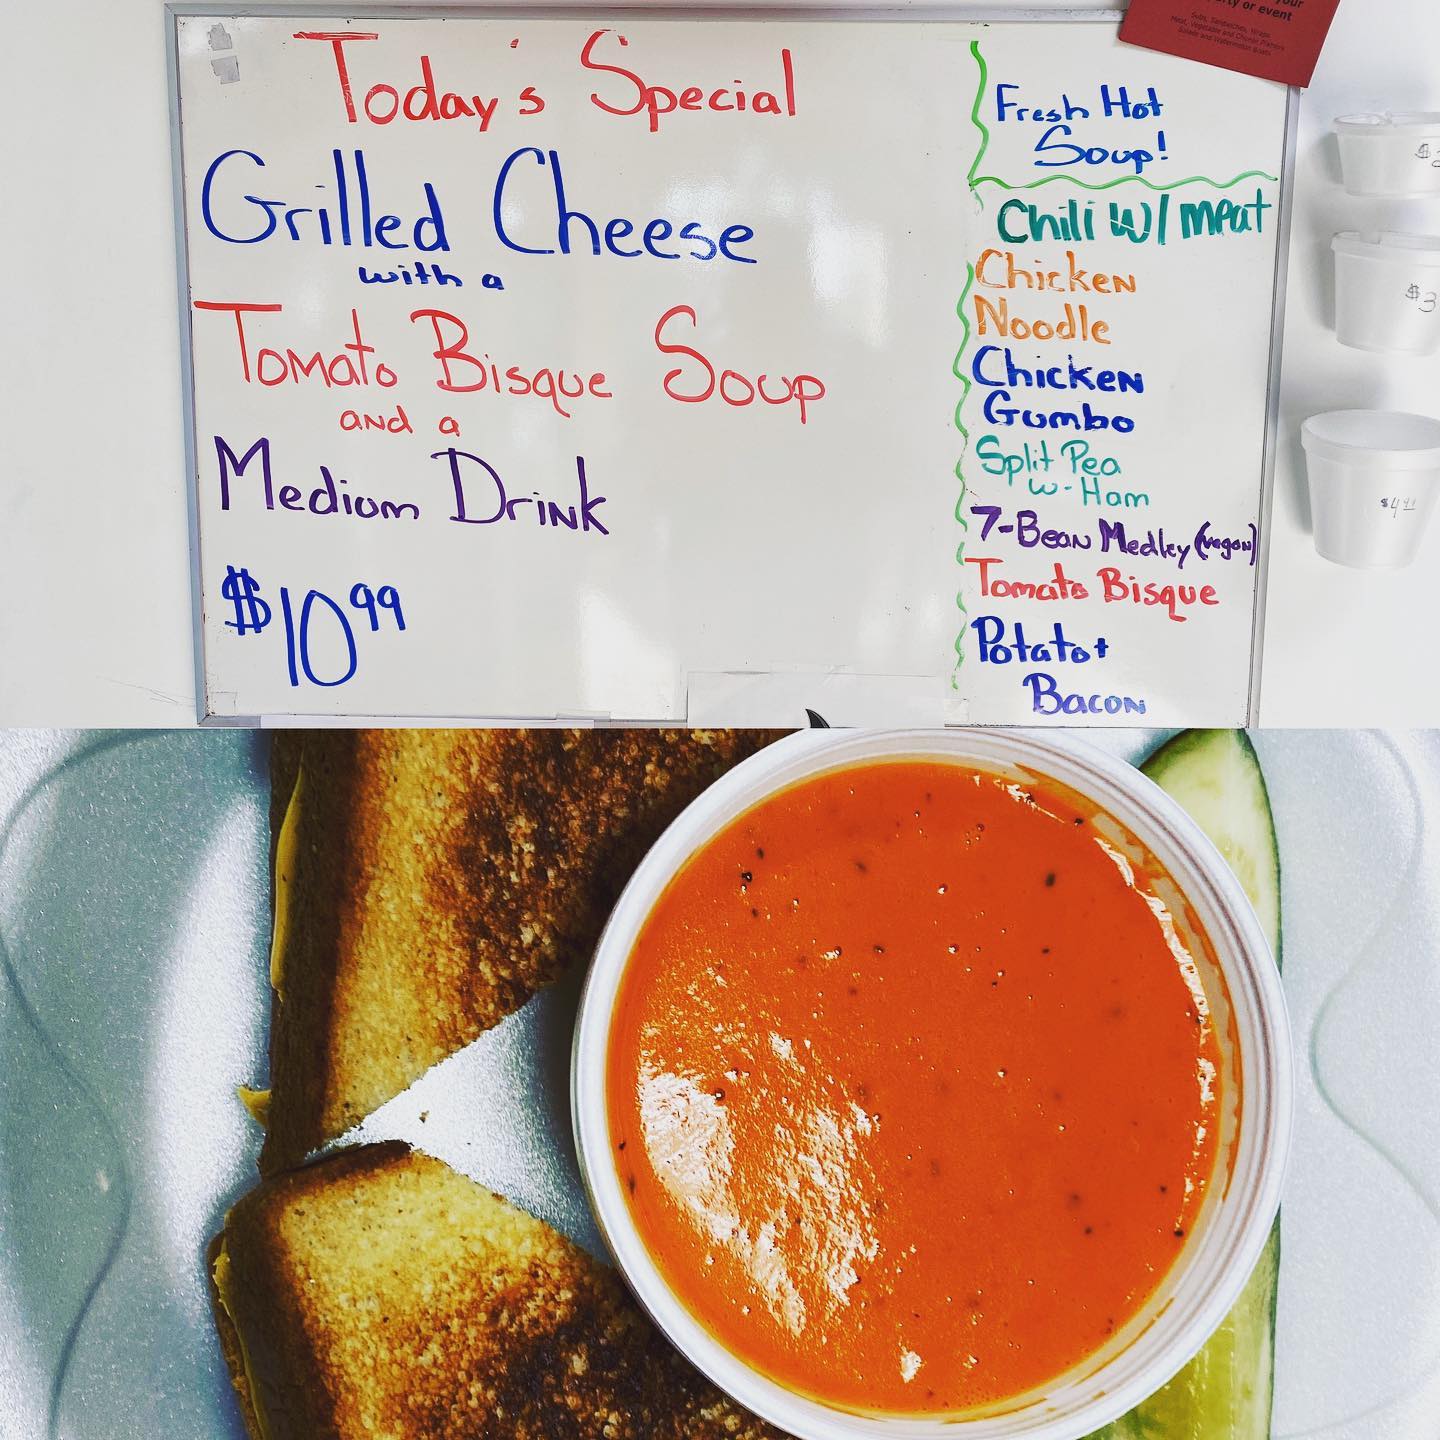 Today's Special
Grilled Cheese
with a
Tomato Bisque Soup
and a
Medium Drink
$10.99
Fresh Hot
Soup!
Chili W/ Meat
Chicken
Noodle
Chicken
Gumbo
Split Pea
w-Ham
7-Bean Medley (vegan)
Tomato Bisque
Potato +
Bacon
your
or event
Subs, Sandwiches, Wraps
Meat, Vegetable and Cheese Platters
Salads and Watermelon Boats
$3
$4.99